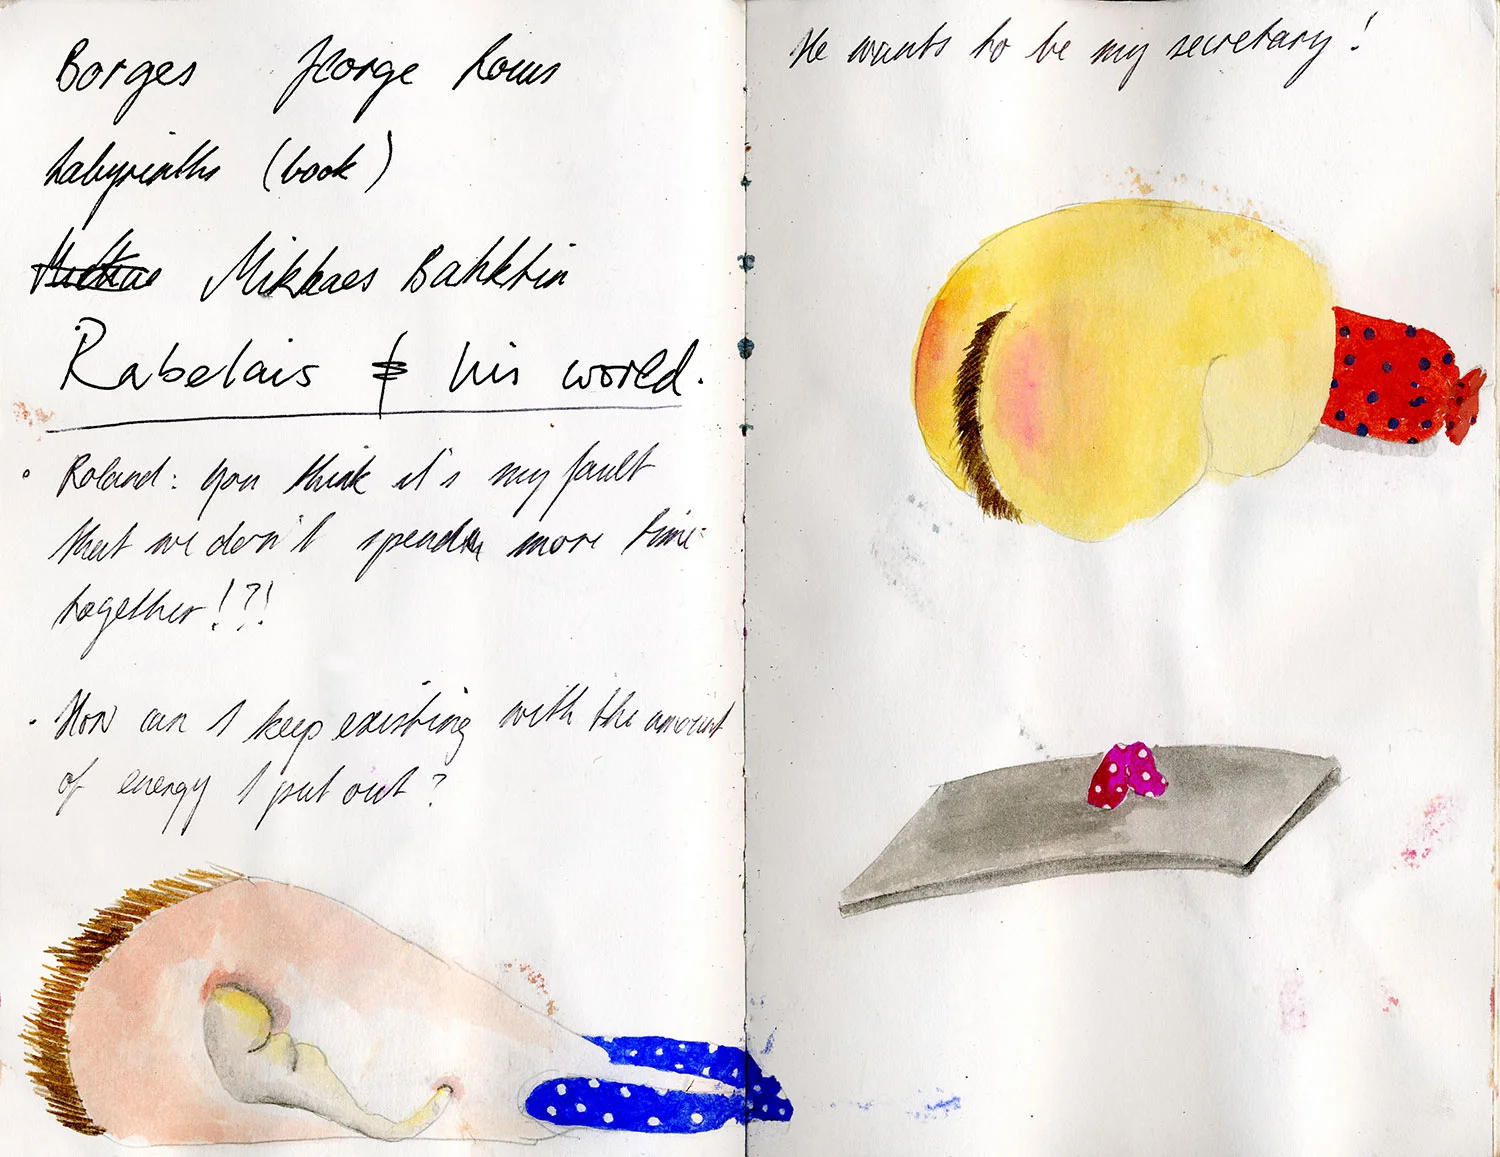 Borges Jeorge Louis
Labyrinths (book)
Mikhaes Bahktin
Rabelais & his world.
• Roland: you think it's my fault
that we don't spend more time
together!?!
• How can I keep existing with the amount
of energy I put out?
He wants to be my secretary!